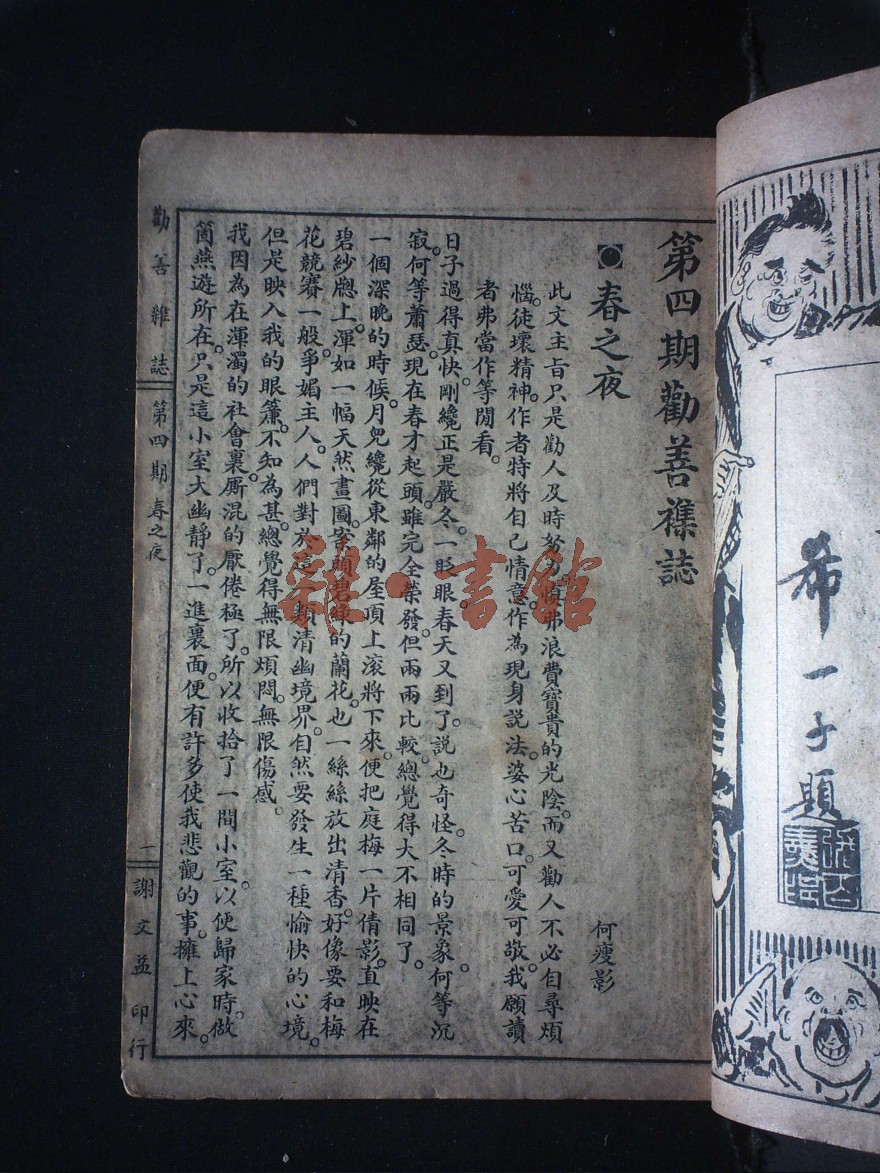 希一子題
第四期勸善襍誌
春之夜
何瘦影
此文主旨只是勸人及時努力慎弗浪費寶貴的光陰。而又勸人不必自尋煩
惱。徒壞精神。作者特將自己情意作為現身説法。婆心苦口。可愛可敬。我願讀
者弗當作等閒看。
日子過得真快。剛纔正是嚴冬。一眨眼。春天又到了。説也奇怪。冬時的景象何等沉
寂。何等蕭瑟。現在春才起頭。雖完全榮發。但兩兩比較。總覺得大不相同了。
一個深晚的時候。月兒纔從東鄰的屋頂上滚將下來。便把庭梅一片倩影。直映在
碧紗牕上。渾如一幅天然畫圖。案頭碧綠的蘭花。也一絲絲放出清香。好像要和梅
花競賽一般。爭媚主人。人們對於這一類清幽境界。自然要發生一種愉快的心境。
但是映入我的眼簾。不知為甚。總覺得無限煩悶。無限傷感。
我因為在渾濁的社會裏厮混的厭倦極了。所以收拾了一間小室。以便歸家時。做
箇燕遊所在。只是這小室大幽靜了。一進裏面。便有許多使我悲觀的事。擁上心來。
勸善雜誌
第四期 春之夜
一
謝文益印行
雜·書館